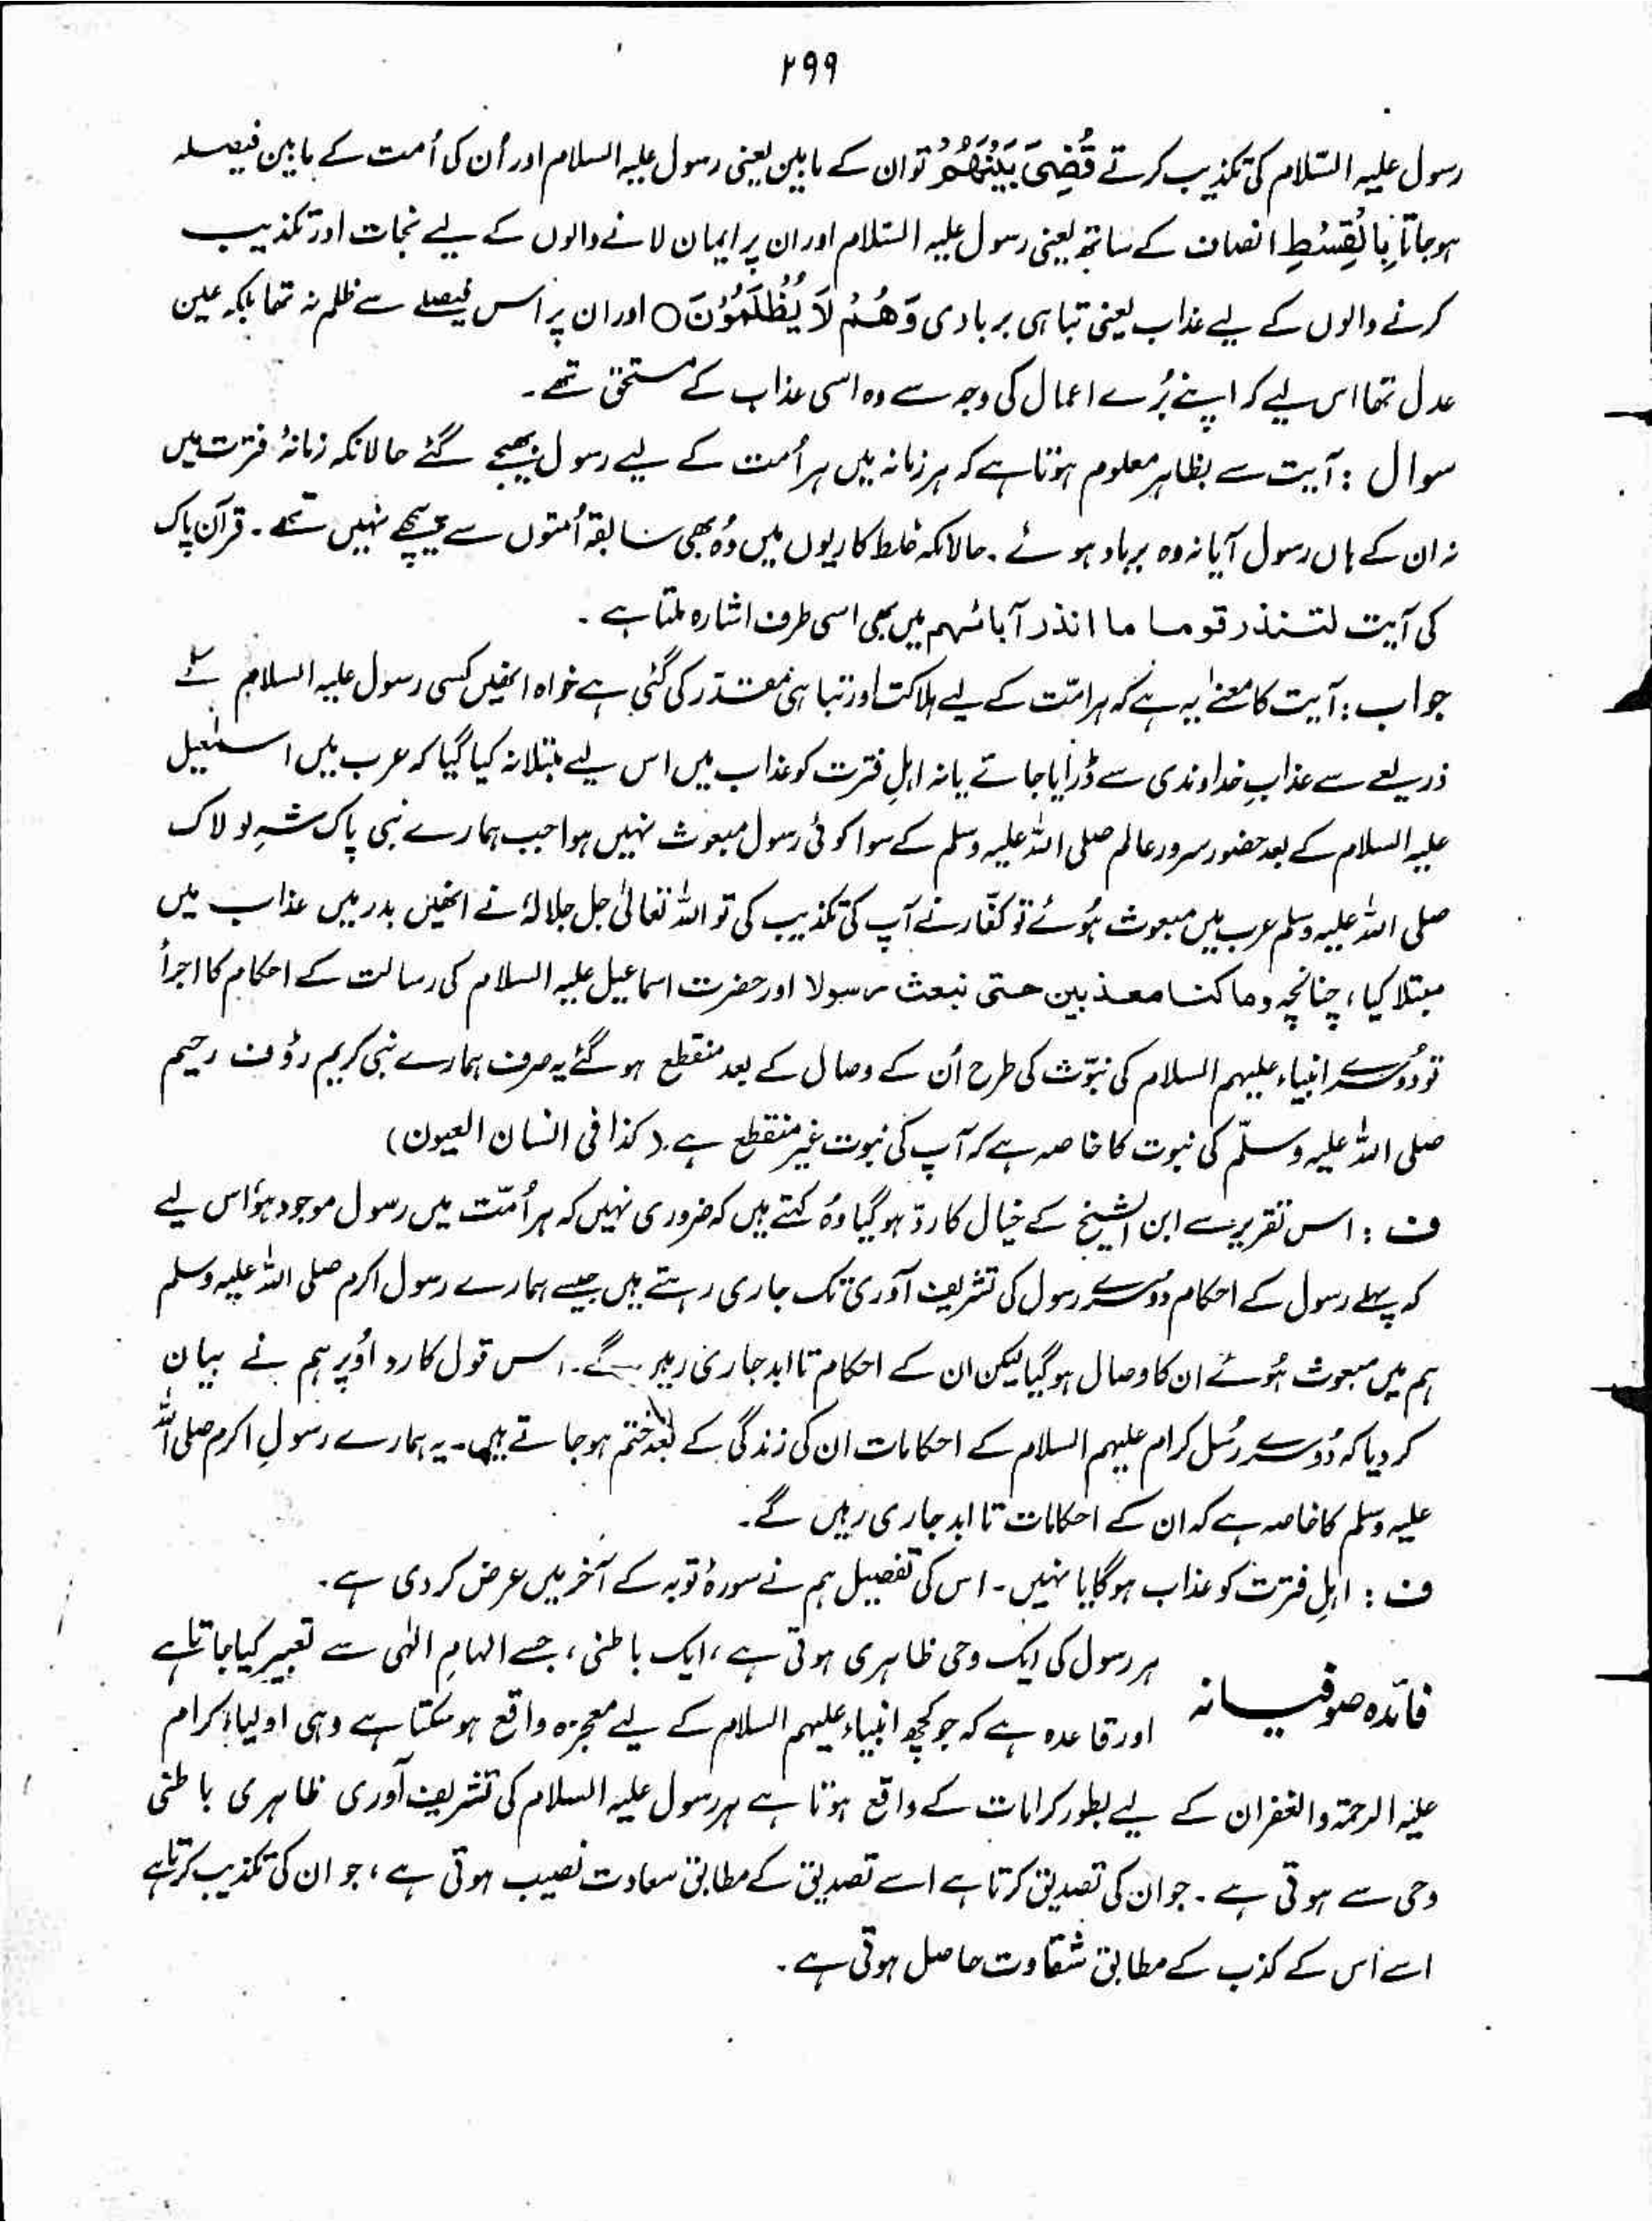 ۲۹۹
رسول علیہ السّلام کی تکذیب کرتے قُضِیَ بَیْنَهُمْ تو ان کے مابین یعنی رسول علیہ السلام اور اُن کی اُمت کے مابین فیصلہ
ہوجاتا بِالْقِسْطِ انصاف کے ساتھ یعنی رسول علیہ السّلام اور ان پر ایمان لانے والوں کے لیے نجات اور تکذیب
کرنے والوں کے لیے عذاب یعنی تباہی بربادی وَهُمْ لَا یُظْلَمُوْنَ○ اور ان پر اس فیصلے سے ظلم نہ تھا بلکہ عین
عدل تھا اس لیے کہ اپنے بُرے اعمال کی وجہ سے وہ اسی عذاب کے مستحق تھے۔
سوال : آیت سے بظاہر معلوم ہوتا ہے کہ ہر زمانہ میں ہر اُمت کے لیے رسول بھیجے گئے حالانکہ زمانۂ فترت میں
نہ ان کے ہاں رسول آیا نہ وہ برباد ہوئے۔ حالانکہ غلط کاریوں میں وُہ بھی سابقہ اُمتوں سے پیچھے نہیں تھے۔ قرآن پاک
کی آیت لتنذر قوما ما انذر آبائهم میں بھی اسی طرف اشارہ ملتا ہے۔
جواب : آیت کا معنٰے یہ ہے کہ ہر امّت کے لیے ہلاکت اور تباہی مقدّر کی گئی ہے خواہ انھیں کسی رسول علیہ السلام کے
ذریعے سے عذابِ خداوندی سے ڈرایا جاتے یا نہ اہلِ فترت کو عذاب میں اس لیے مبتلا نہ کیا گیا کہ عرب میں اسمٰعیل
علیہ السلام کے بعد حضور سرور عالم صلی اللہ علیہ وسلم کے سوا کوئی رسول مبعوث نہیں ہوا جب ہمارے نبی پاک شہِ لولاک
صلی اللہ علیہ وسلم عرب میں مبعوث ہُوئے تو کفّار نے آپ کی تکذیب کی تو اللہ تعالیٰ جل جلالہٗ نے انھیں بدر میں عذاب میں
مبتلا کیا، چنانچہ وما کنا معذبین حتی نبعث رسولا اور حضرت اسماعیل علیہ السلام کی رسالت کے احکام کا اجرأ
تو دُوسرے انبیاء علیہم السلام کی نبوّت کی طرح اُن کے وصال کے بعد منقطع ہوگئے یہ صرف ہمارے نبی کریم رؤف رحیم
صلی اللہ علیہ وسلّم کی نبوت کا خاصہ ہے کہ آپ کی نبوت غیر منقطع ہے۔ (کذا فی انسان العیون)
ف : اس تقریر سے ابن الشیخ کے خیال کا ردّ ہوگیا وُہ کہتے ہیں کہ ضروری نہیں کہ ہر اُمّت میں رسول موجود ہو اس لیے
کہ پہلے رسول کے احکام دوسرے رسول کی تشریف آوری تک جاری رہتے ہیں جیسے ہمارے رسول اکرم صلی اللہ علیہ وسلم
ہم میں مبعوث ہُوئے ان کا وصال ہوگیا لیکن ان کے احکام تا ابد جاری رہیں گے۔ اس قول کا رد اُوپر ہم نے بیان
کردیا کہ دُوسرے رُسل کرام علیہم السلام کے احکامات ان کی زندگی کے بعد ختم ہوجاتے ہیں۔ یہ ہمارے رسولِ اکرم صلی اللہ
علیہ وسلم کا خاصہ ہے کہ ان کے احکامات تا ابد جاری رہیں گے۔
ف : اہلِ فترت کو عذاب ہوگا یا نہیں۔ اس کی تفصیل ہم نے سورۂ توبہ کے آخر میں عرض کر دی ہے۔
فائدہ صوفیانہ ہر رسول کی ایک وحی ظاہری ہوتی ہے، ایک باطنی، جسے الہامِ الٰہی سے تعبیر کیا جاتا ہے
اور قاعدہ ہے کہ جو کچھ انبیاء علیہم السلام کے لیے معجزہ واقع ہوسکتا ہے وہی اولیاء کرام
علیہ الرحمۃ والغفران کے لیے بطور کرامات کے واقع ہوتا ہے ہر رسول علیہ السلام کی تشریف آوری ظاہری باطنی
وحی سے ہوتی ہے۔ جو ان کی تصدیق کرتا ہے اسے تصدیق کے مطابق سعادت نصیب ہوتی ہے، جو ان کی تکذیب کرتا ہے
اسے اس کے کذب کے مطابق شقاوت حاصل ہوتی ہے۔